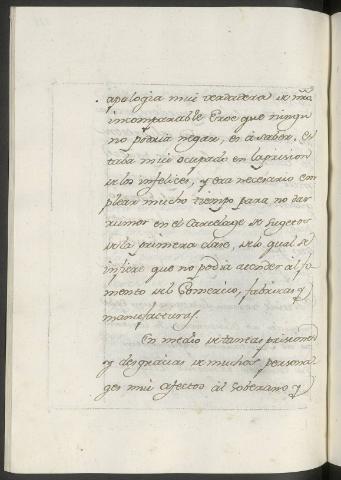 apologia mui verdadera de nro
incomparable Eroe que ningu
no podria negar, es à saber. es
taba mui ocupado en la prision
de los infelices, y era necesario em
plear mucho tiempo para no dar
rumor en el Carcelage de Sugetos
de la primera clase, de lo qual se
infiere que no podia atender al fo
mento del Comercio, fabricas y
manufacturas.
En medio de tantas prisiones
y desgracias de muchos persona
ges mui afectos al Soberano y